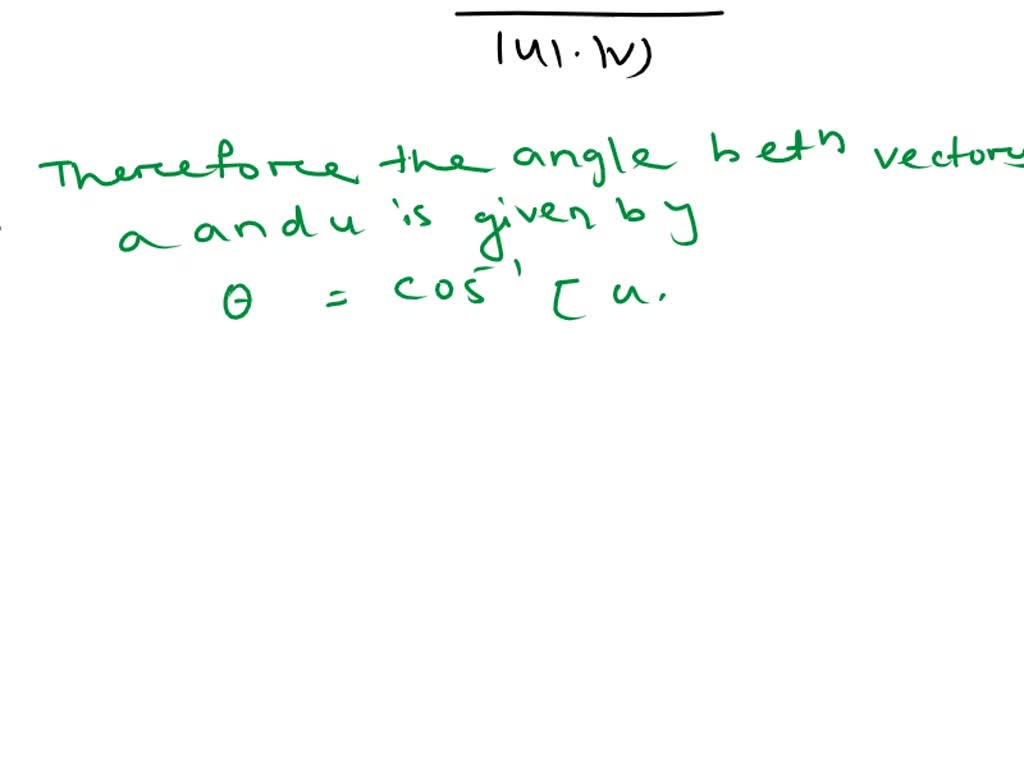 |u|.|v|
Therefore the angle betn vectors
a and u is given by
θ = cos⁻¹ [ u.